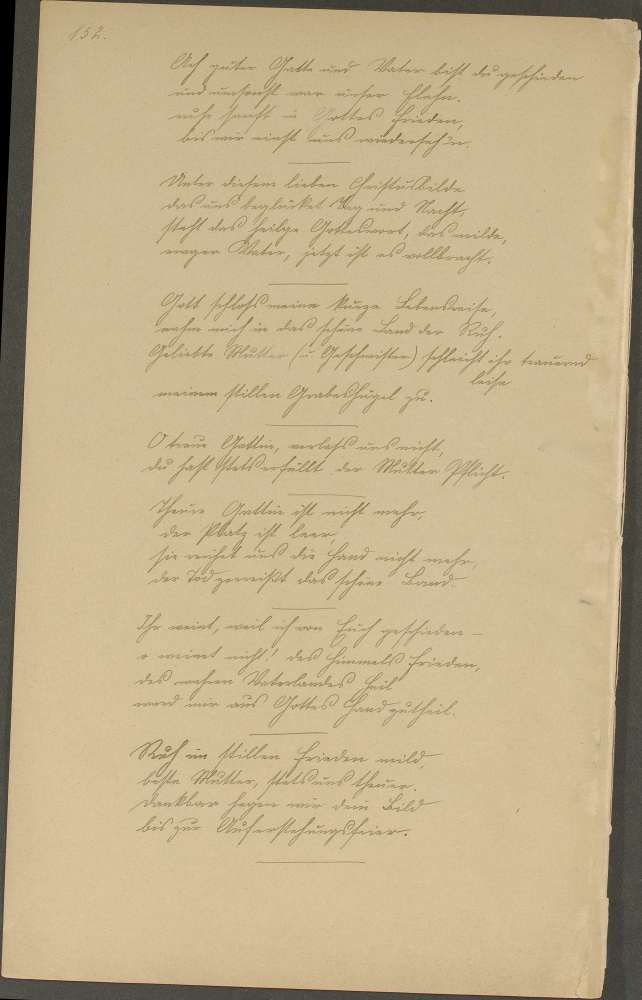 132.
Ach guter Gatte und Vater bist du geschieden
und umsonst war unser Flehn.
ruhe sanft in Gottes Frieden,
bis wir einst uns wiederseh'n.
Unter diesem lieben Christusbilde
das uns beglücket Tag und Nacht,
steht das heilge Gotteswort, das milde,
ewger Vater, jetzt ist es vollbracht.
Gott schloß meine kurze Lebensreise,
nahm mich in das schöne Land der Ruh.
Geliebte Mutter (u. Geschwister) schleicht ihr trauernd
leise
meinem stillen Grabeshügel zu.
O treue Gattin, verlaß uns nicht,
du hast stets erfüllt der Mutter Pflicht.
Theure Gattin ist nicht mehr,
der Platz ist leer,
sie reichet uns die Hand nicht mehr,
der Tod zerreißt das schöne Band.
Ihr weint, weil ich von Euch geschieden –
o weinet nicht! des Himmels Frieden,
des wahren Vaterlandes Heil
ward mir aus Gottes Hand zutheil.
Ruh im stillen Frieden mild,
beste Mutter, stets uns theuer.
Dankbar hegen wir dein Bild
bis zur Auferstehungsfeier.